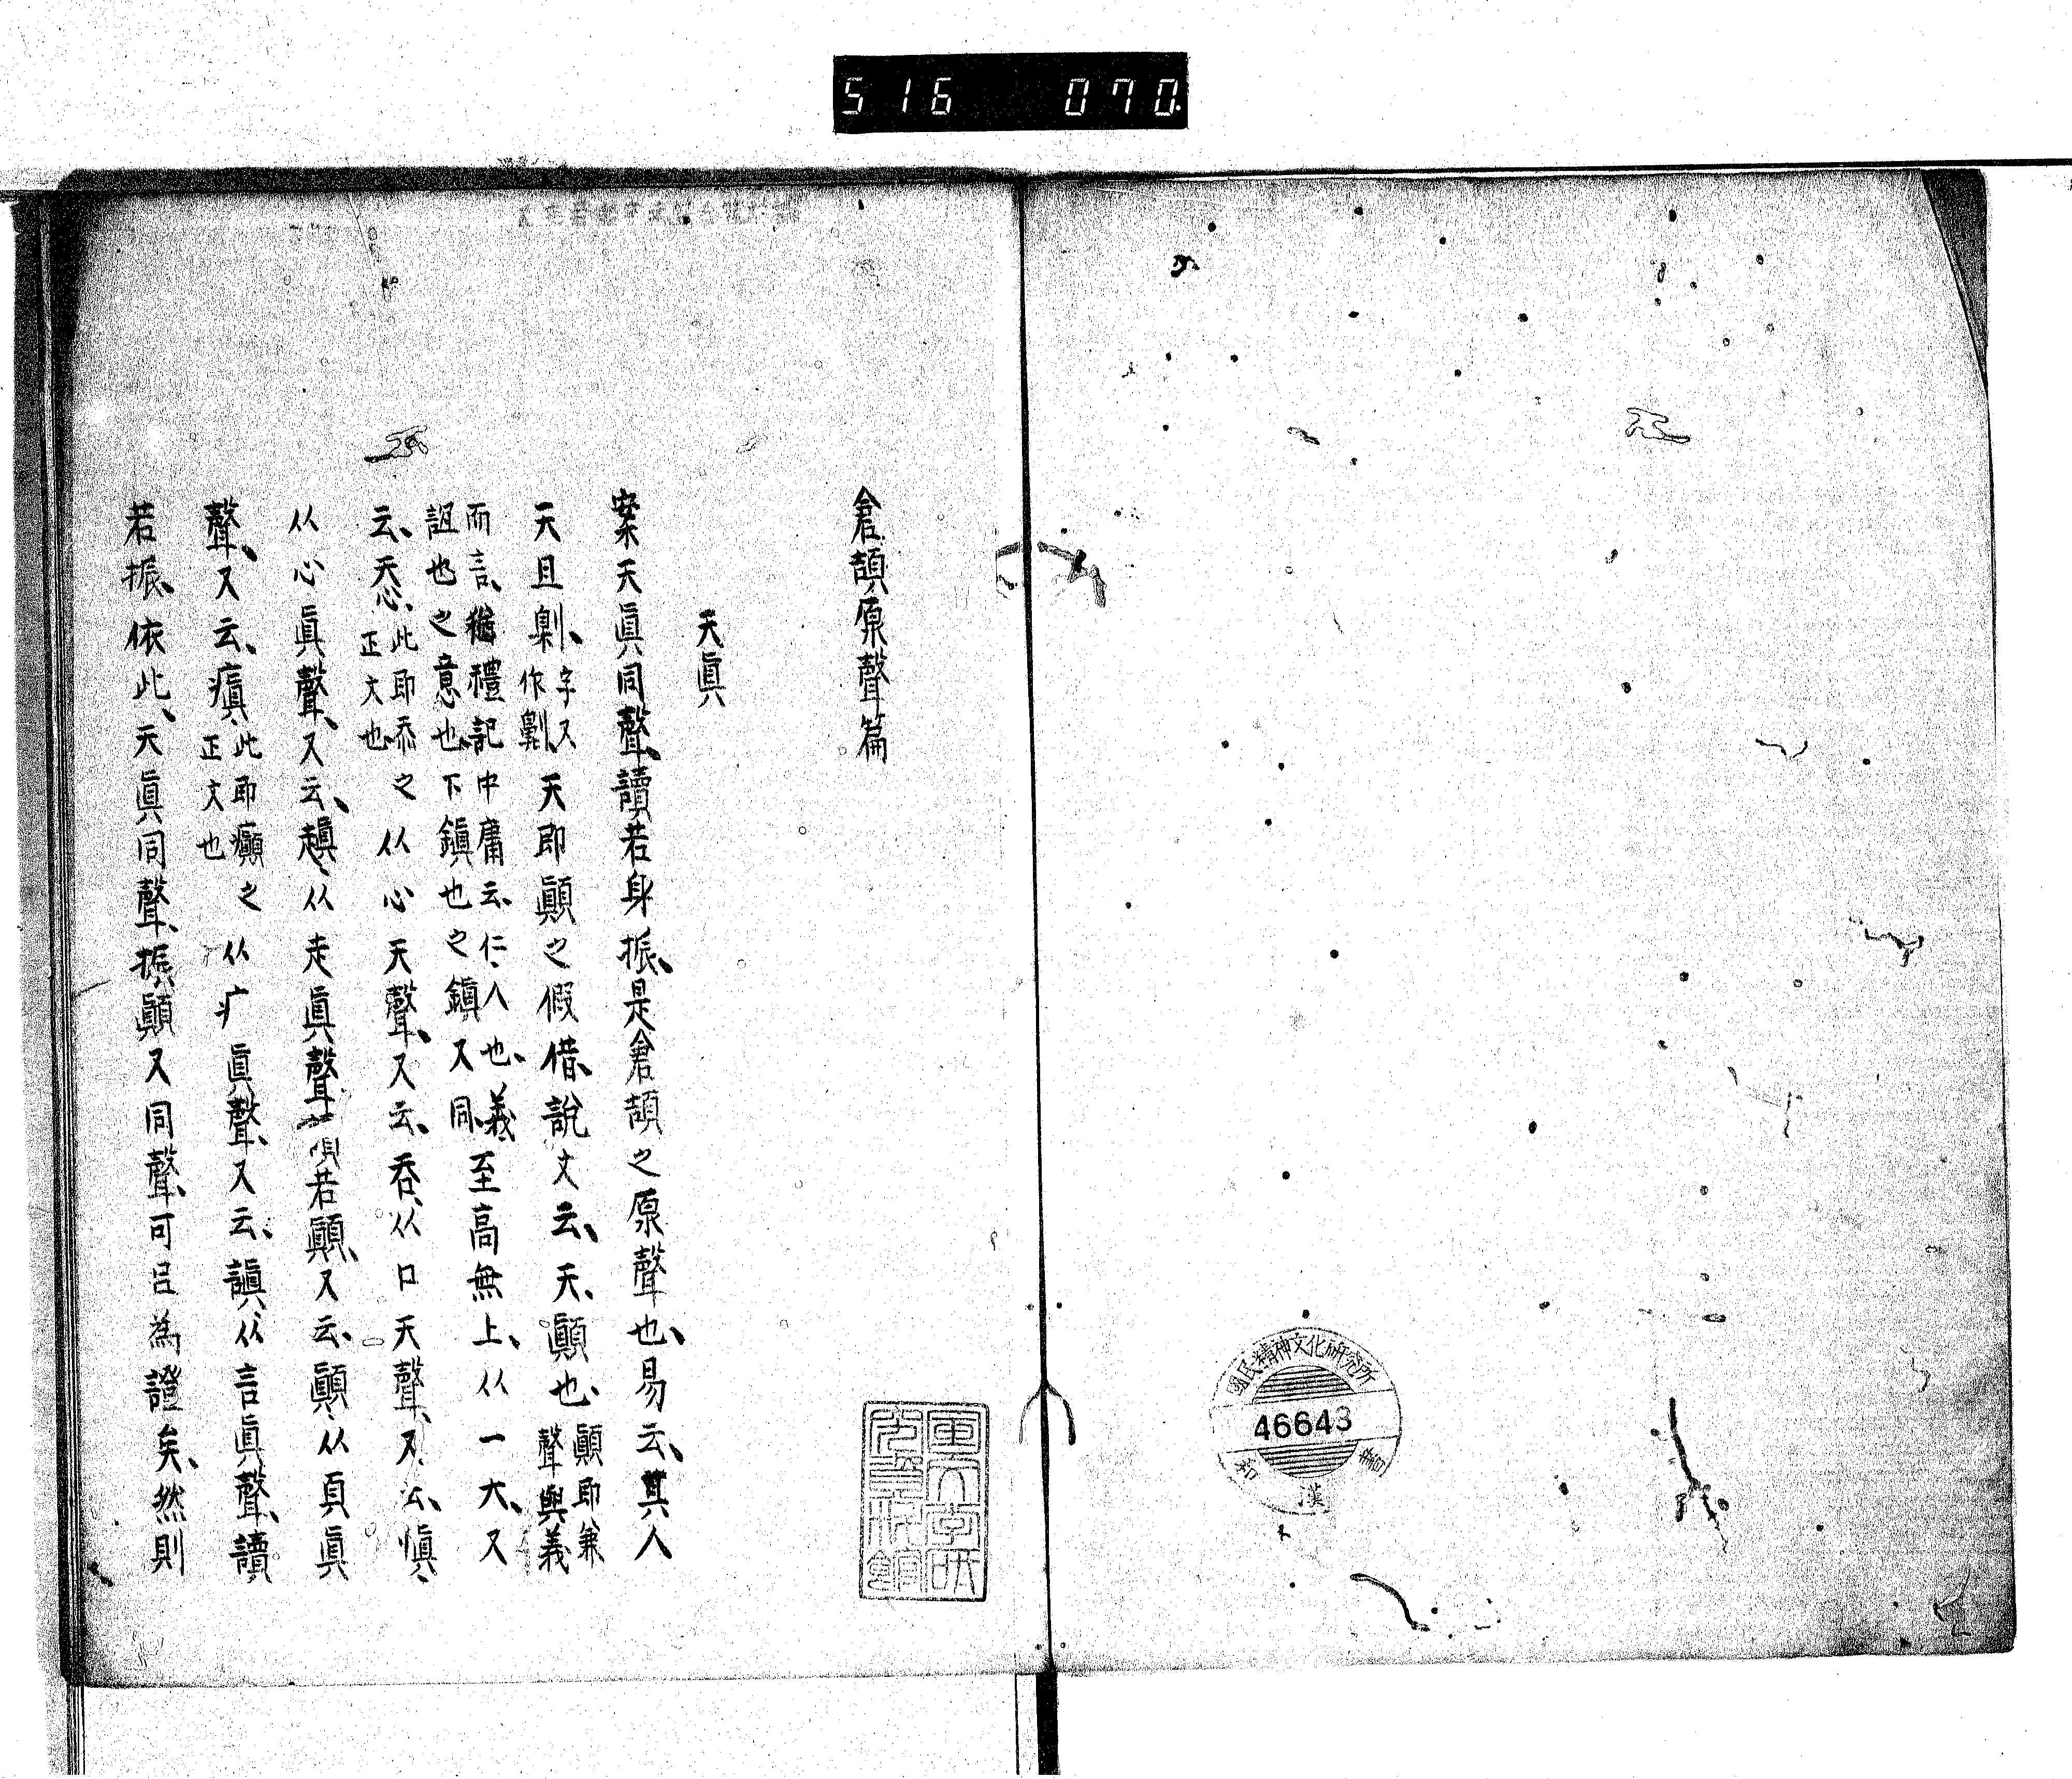 516 070.
國民精神文化研究所
46643
和漢書
倉頡原聲篇
天眞
案天眞同聲、讀若身振、是倉頡之原聲也、易云、其人
天且劓、字又作劓、天即顚之假借、說文云、天、顚也、顚即兼聲與義
而言、猶禮記中庸云、仁、人也、義、至高無上、从一大、又
誼也之意也、下鎭也之鎭又同、
云、忝、此即忝之正文也、从心天聲、又云、吞、从口天聲、又云、愼、
从心眞聲、又云、趚、从走眞聲、讀若顚、又云、顚、从頁眞
聲、又云、瘨、此即癲之正文也、从疒眞聲、又云、謓、从言眞聲、讀
若振、依此、天眞同聲、振顚又同聲、可㠯為證矣、然則